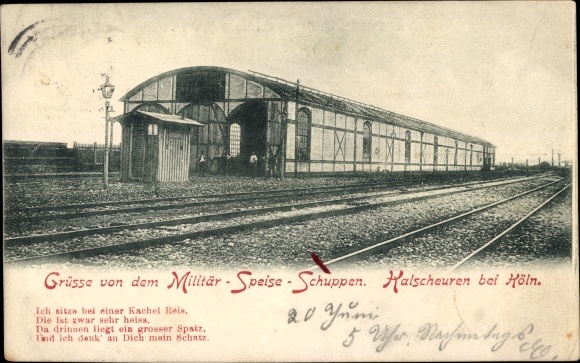 Grüsse von dem Militär-Speise-Schuppen. Halscheuren bei Köln.
Ich sitze bei einer Kachel Reis,
Die ist zwar sehr heiss,
Da drinnen liegt ein grosser Spatz,
Und ich denk' an Dich mein Schatz.
20 Juni
5 Uhr. Nachmittags